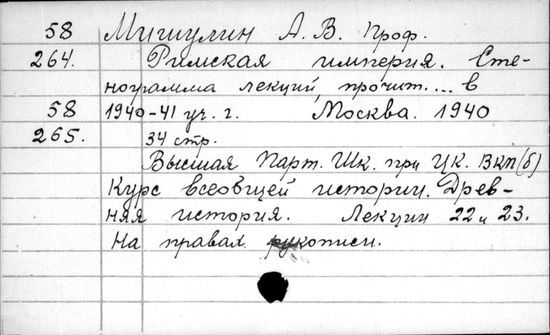 58 Мишулин А. В. Проф.
264. Римская империя. Сте-
нограмма лекций, прочит.... в
58 1940-41 уч. г. Москва. 1940
265. 34 стр.
Высшая Парт. Шк. при ЦК. ВКП(б)
Курс всеобщей истории. Древ-
няя история. Лекции 22 и 23.
На правах рукописи.